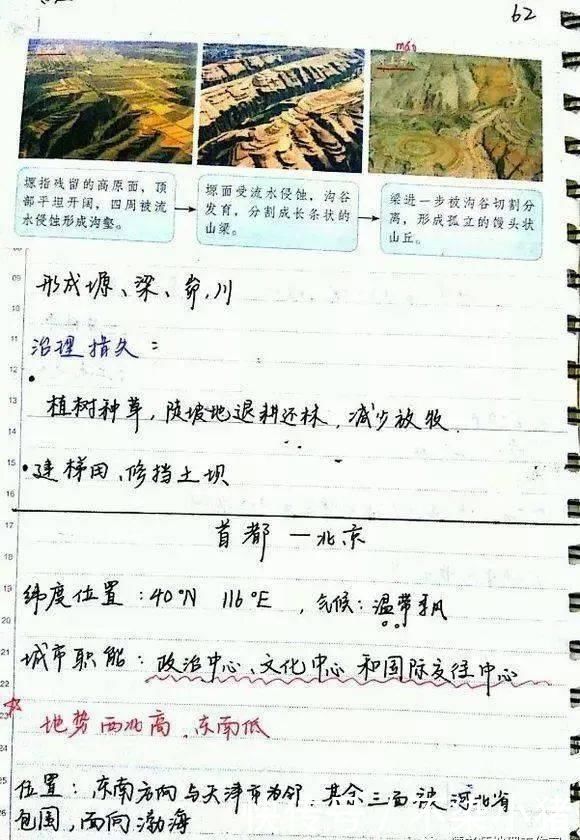 62
máo
塬指残留的高原面，顶
部平坦开阔，四周被流
水侵蚀形成沟壑。
塬面受流水侵蚀，沟谷
发育，分割成长条状的
山梁。
梁进一步被沟谷切割分
离，形成孤立的馒头状
山丘。
形成塬、梁、峁、川
治理措久：
植树种草，陡坡地退耕还林，减少放牧
·建梯田、修挡土坝
首都—北京
纬度位置：40°N 116°E ，气候：温带季风
城市职能：政治中心、文化中心和国际交往中心
☆ 地势西北高，东南低
位置：东南方向与天津市为邻，其余三面被河北省
包围，面向渤海
09
10
11
12
13
14
15
16
17
18
19
20
21
22
23
25
26